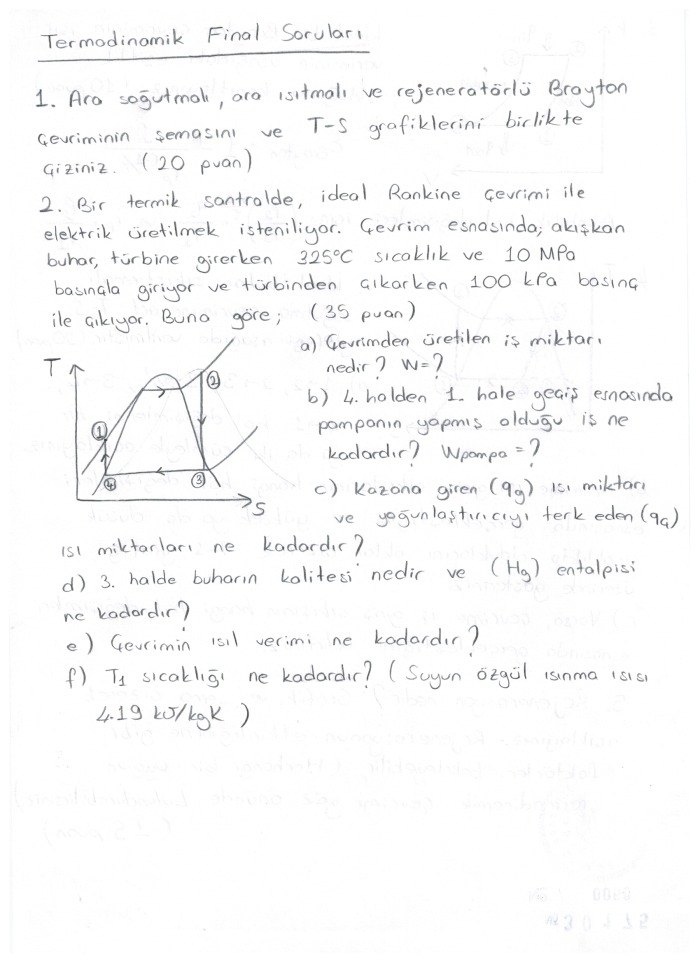 Termodinamik Final Soruları
1. Ara soğutmalı, ara ısıtmalı ve rejeneratörlü Brayton
çevriminin şemasını ve T-S grafiklerini birlikte
çiziniz. (20 puan)
2. Bir termik santralde, ideal Rankine çevrimi ile
elektrik üretilmek isteniliyor. Çevrim esnasında, akışkan
buhar, türbine girerken 325°C sıcaklık ve 10 MPa
basınçla giriyor ve türbinden çıkarken 100 kPa basınç
ile çıkıyor. Buna göre; (35 puan)
a) Çevrimden üretilen iş miktarı
nedir? W=?
b) 4. halden 1. hale geçiş esnasında
pompanın yapmış olduğu iş ne
kadardır? Wpompa = ?
c) Kazana giren (qg) ısı miktarı
ve yoğunlaştırıcıyı terk eden (qç)
ısı miktarları ne kadardır?
T
1
2
3
4
S
d) 3. halde buharın kalitesi nedir ve (Hg) entalpisi
ne kadardır?
e) Çevrimin ısıl verimi ne kadardır?
f) T1 sıcaklığı ne kadardır? (Suyun özgül ısınma ısısı
4.19 kJ/kgK )